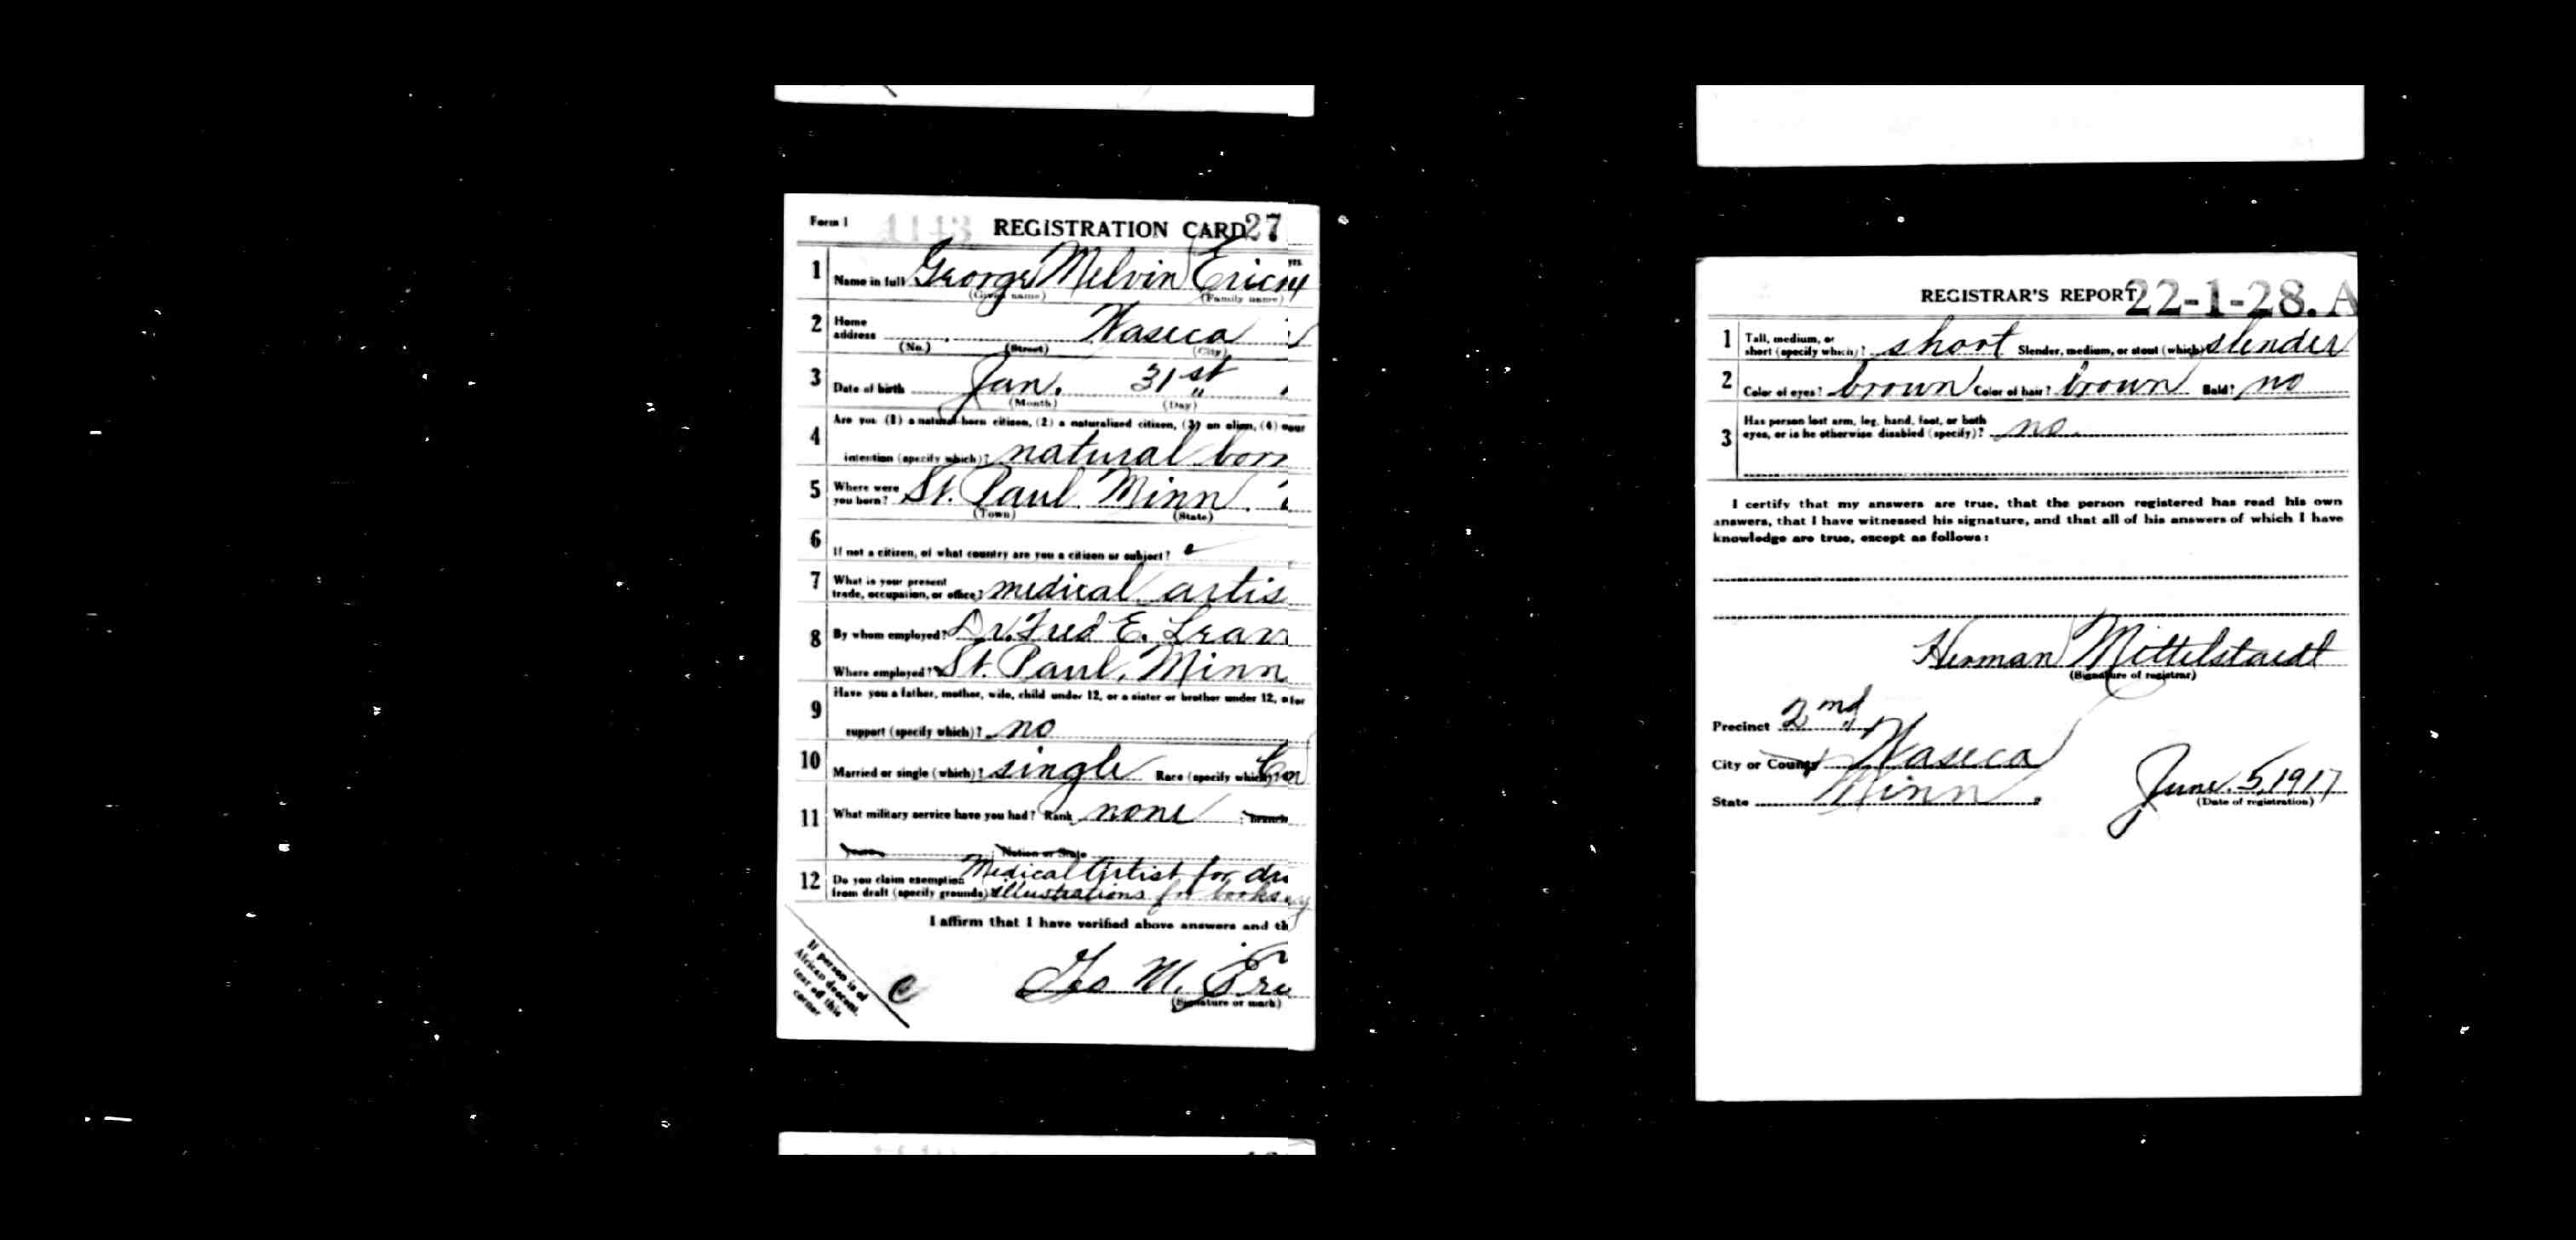 Form 1 1143 REGISTRATION CARD 27
1 Name in full George Melvin yrs.
(Given name) (Family name)
2 Home address Waseca
(No.) (Street) (City)
3 Date of birth Jan. 31st
(Month) (Day)
4 Are you (1) a natural-born citizen, (2) a naturalized citizen, (3) an alien, (4)
intention (specify which)? natural born
5 Where were you born? St. Paul Minn.
(Town) (State)
6 If not a citizen, of what country are you a citizen or subject?
7 What is your present trade, occupation, or office? medical artis
8 By whom employed? Dr. Fred E.
Where employed? St. Paul, Minn
9 Have you a father, mother, wife, child under 12, or a sister or brother under 12,
support (specify which)? no
10 Married or single (which)? single Race (specify which)?
11 What military service have you had? Rank none ; branch
years Nation or State
12 Do you claim exemption Medical Artist for
from draft (specify grounds)? illustrations for books
I affirm that I have verified above answers and th
Geo M.
(Signature or mark)
If person is of
African descent,
tear off this
corner
C
REGISTRAR'S REPORT 22-1-28. A
1 Tall, medium, or short (specify which)? short Slender, medium, or stout (which)? slender
2 Color of eyes? brown Color of hair? brown Bald? no
3 Has person lost arm, leg, hand, foot, or both
eyes, or is he otherwise disabled (specify)? no
I certify that my answers are true, that the person registered has read his own
answers, that I have witnessed his signature, and that all of his answers of which I have
knowledge are true, except as follows:
Herman Mittelstaedt
(Signature of registrar)
Precinct 2nd
City or County Waseca
State Minn.
June 5, 1917
(Date of registration)